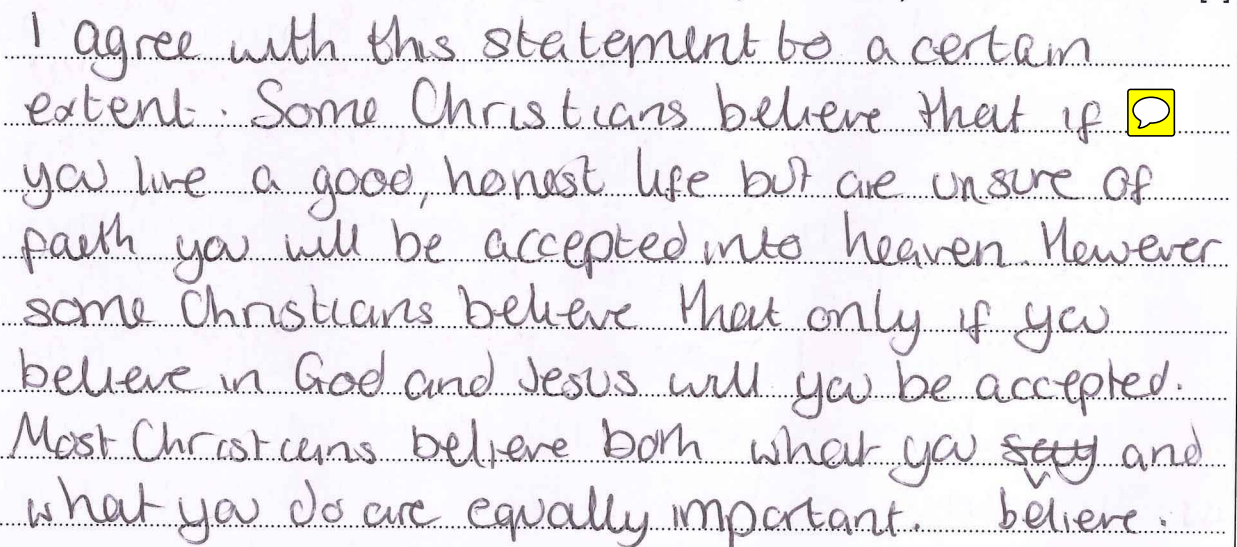 I agree with this statement to a certain
extent. Some Christians believe that if
you live a good, honest life but are unsure of
faith you will be accepted into heaven. However
some Christians believe that only if you
believe in God and Jesus will you be accepted.
Most Christians believe both what you say and
what you do are equally important. believe.